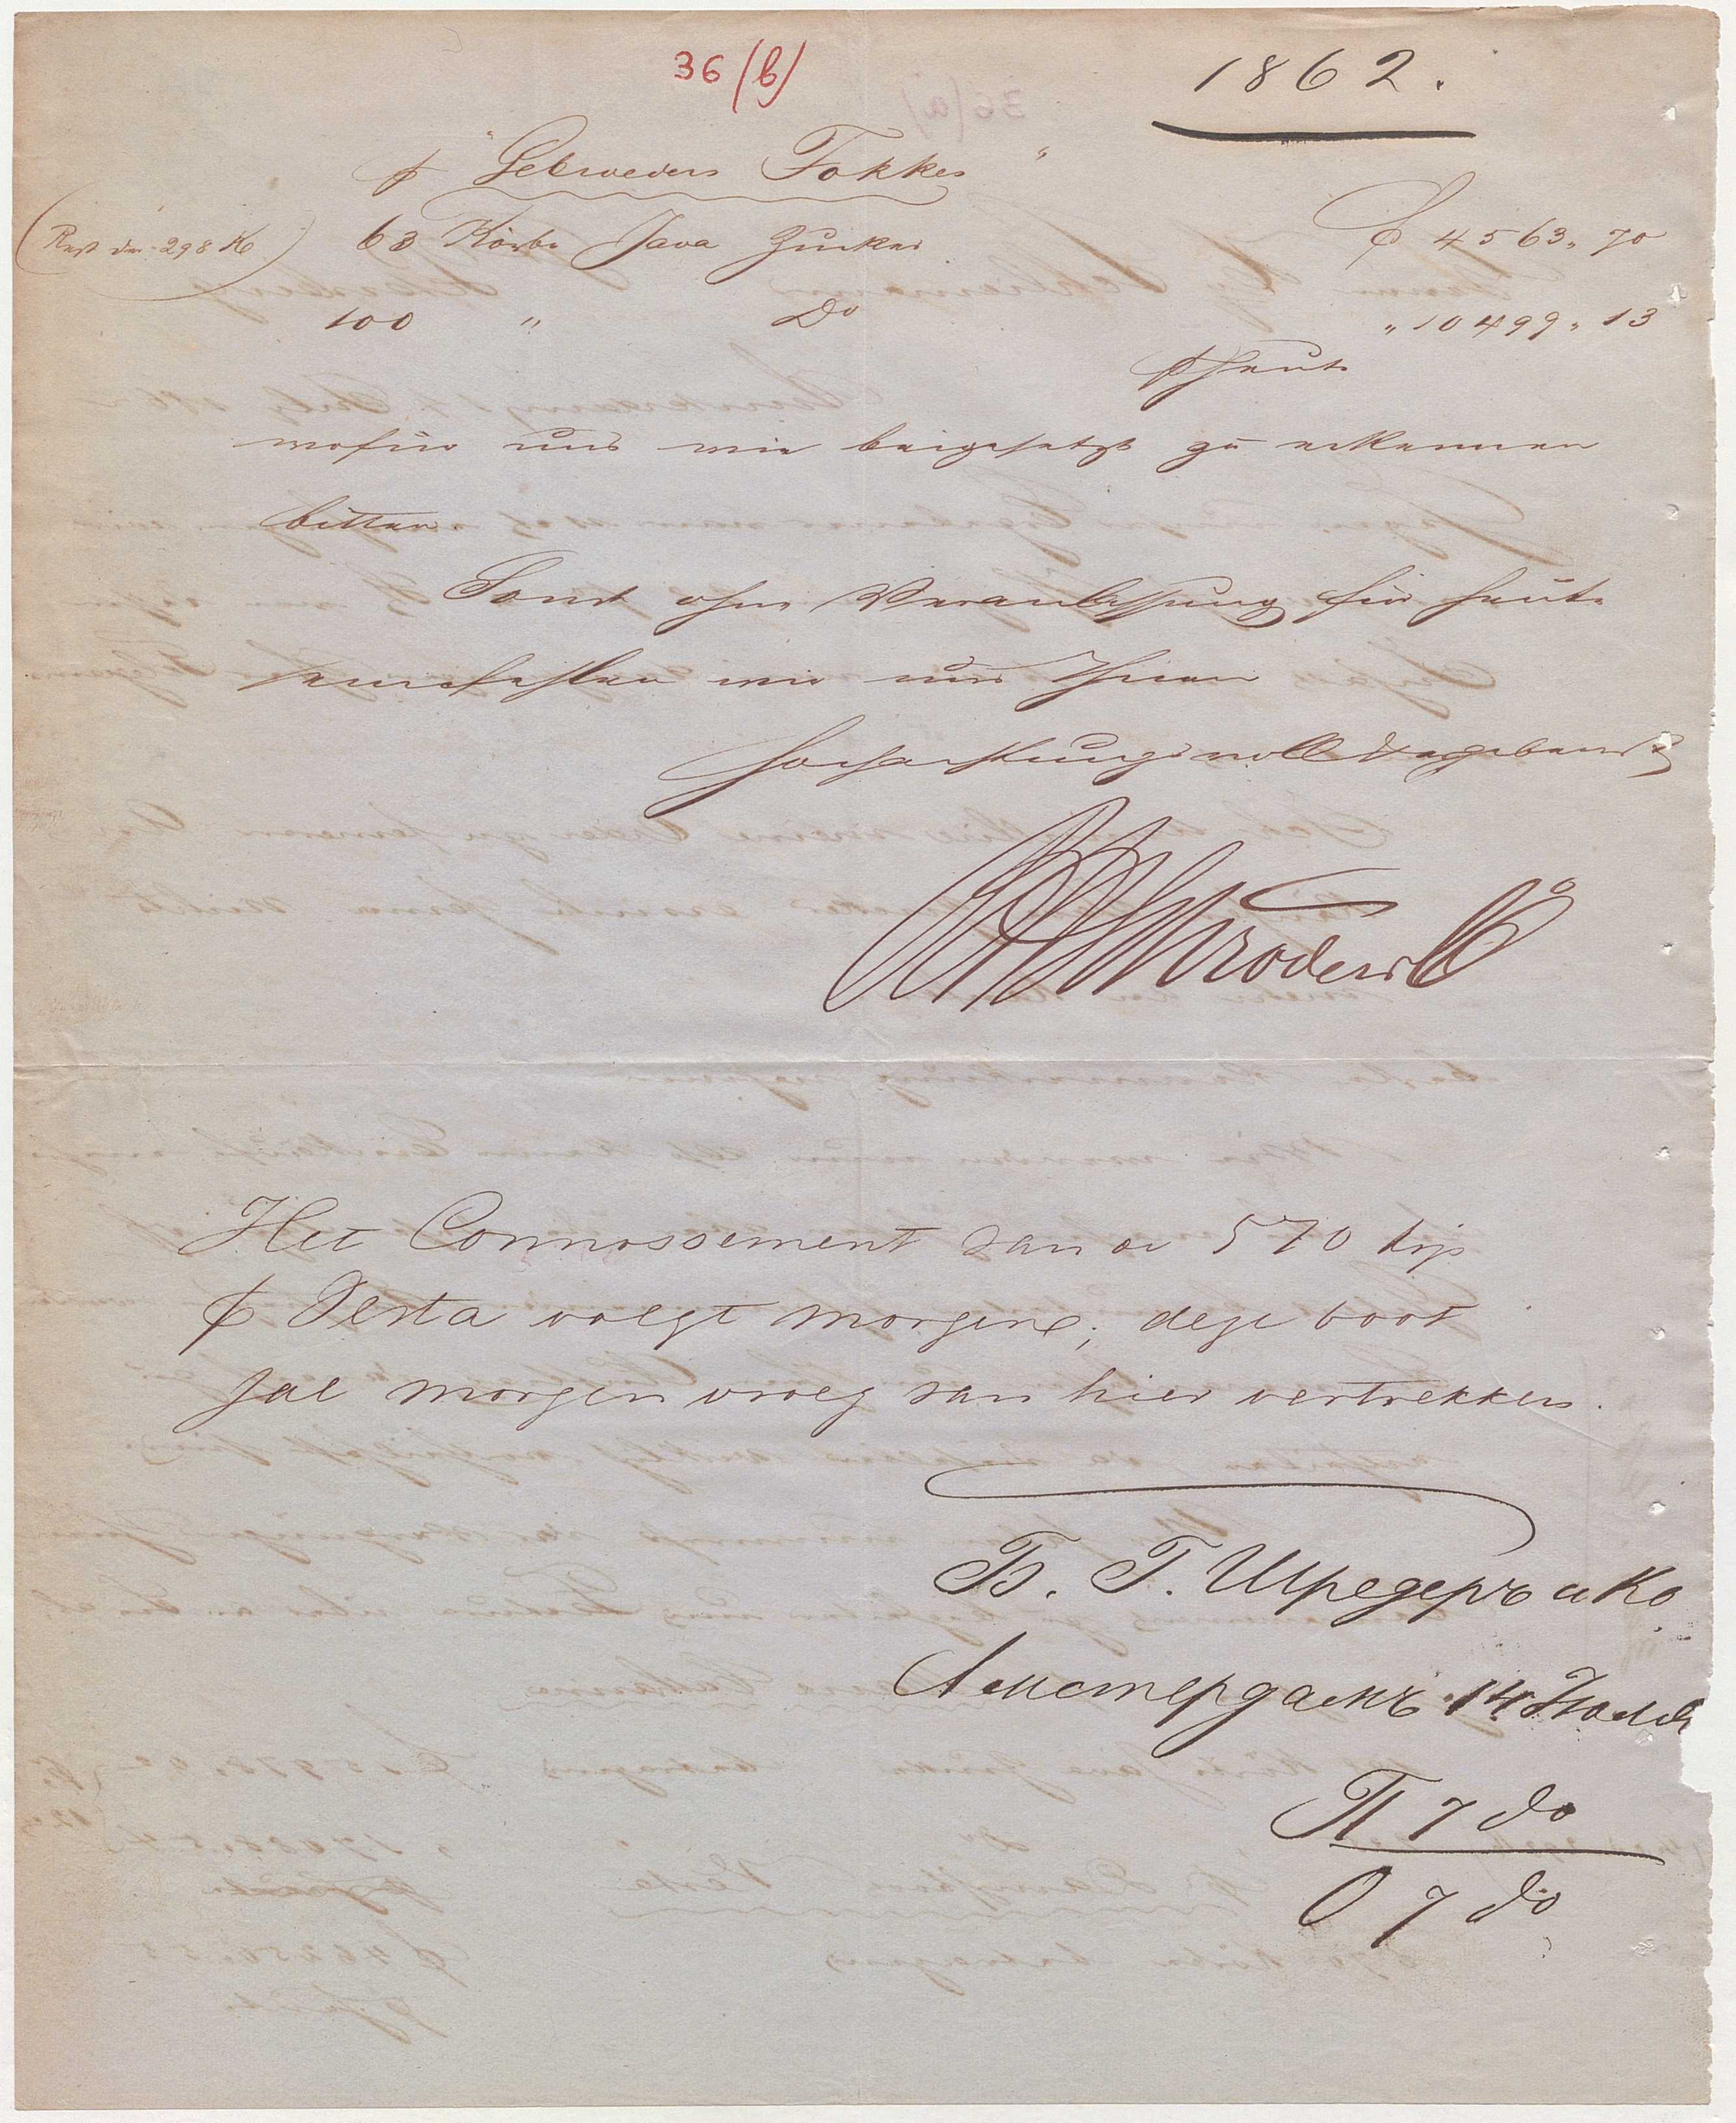 36 (b)
1862.
p "Gebroeders Fokkes"
(Rest der 298 K) 63 Körbe Java Zucker f 4563,, 70
100 " Do " 10499,, 13
p heute
wofür uns wie beigesetzt zu erkennen
bitten.
Sonst ohne Veranlassung für heute
empfehlen wir uns Ihnen
hochachtungsvoll & ergebenst
BHSchröder & Co
Het Connossement van de 570 krj
p Vesta volgt morgen; deze boot
zal morgen vroeg van hier vertrekken.
Б. Г. Шредеръ и Ко
Амстердамъ 14 Июля
П 7 до
О 7 до